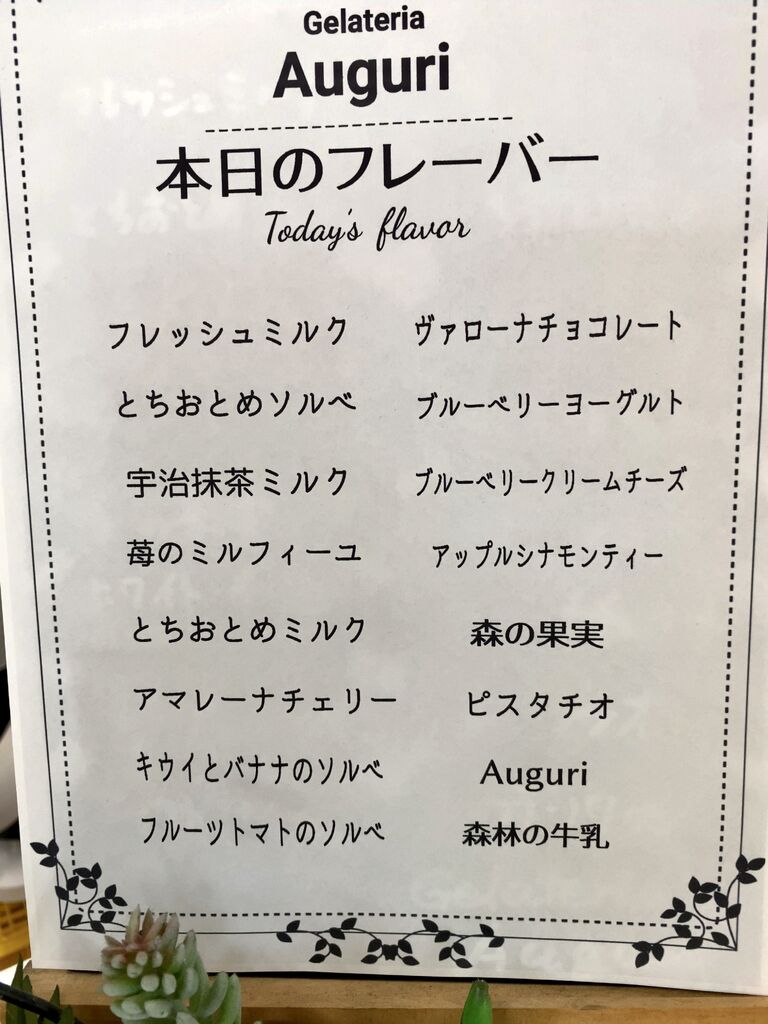 Gelateria
Auguri
本日のフレーバー
Today's flavor
フレッシュミルク
とちおとめソルベ
宇治抹茶ミルク
苺のミルフィーユ
とちおとめミルク
アマレーナチェリー
キウイとバナナのソルベ
フルーツトマトのソルベ
ヴァローナチョコレート
ブルーベリーヨーグルト
ブルーベリークリームチーズ
アップルシナモンティー
森の果実
ピスタチオ
Auguri
森林の牛乳